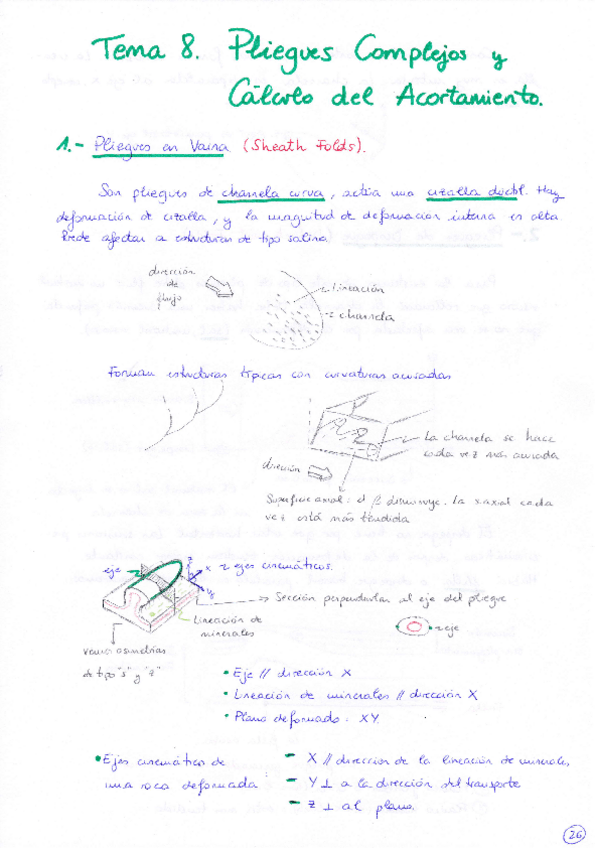 Tema 8. Pliegues Complejos y
Cálculo del Acortamiento.
1.- Pliegues en Vaina (Sheath Folds).
Son pliegues de charnela curva, actúa una cizalla dúctil. Hay
deformación de cizalla, y la magnitud de deformación interna es alta.
Puede afectar a estructuras de tipo salino.
dirección
de
flujo
lineación
charnela
Forman estructuras típicas con curvaturas acusadas
La charnela se hace
cada vez más acusada
dirección
Superficie axial: el β disminuye. La s.axial cada
vez está más tendida
eje
z
x
y
ejes cinemáticos.
Sección perpendicular al eje del pliegue.
Lineación de
minerales
eje
vemos asimetrías
de tipo "s" y "z"
• Eje // dirección X
• Lineación de minerales // dirección X
• Plano deformado: XY.
• Ejes cinemáticos de
una roca deformada:
- X // dirección de la lineación de minerales,
- Y ⊥ a la dirección del transporte
- Z ⊥ al plano.
26